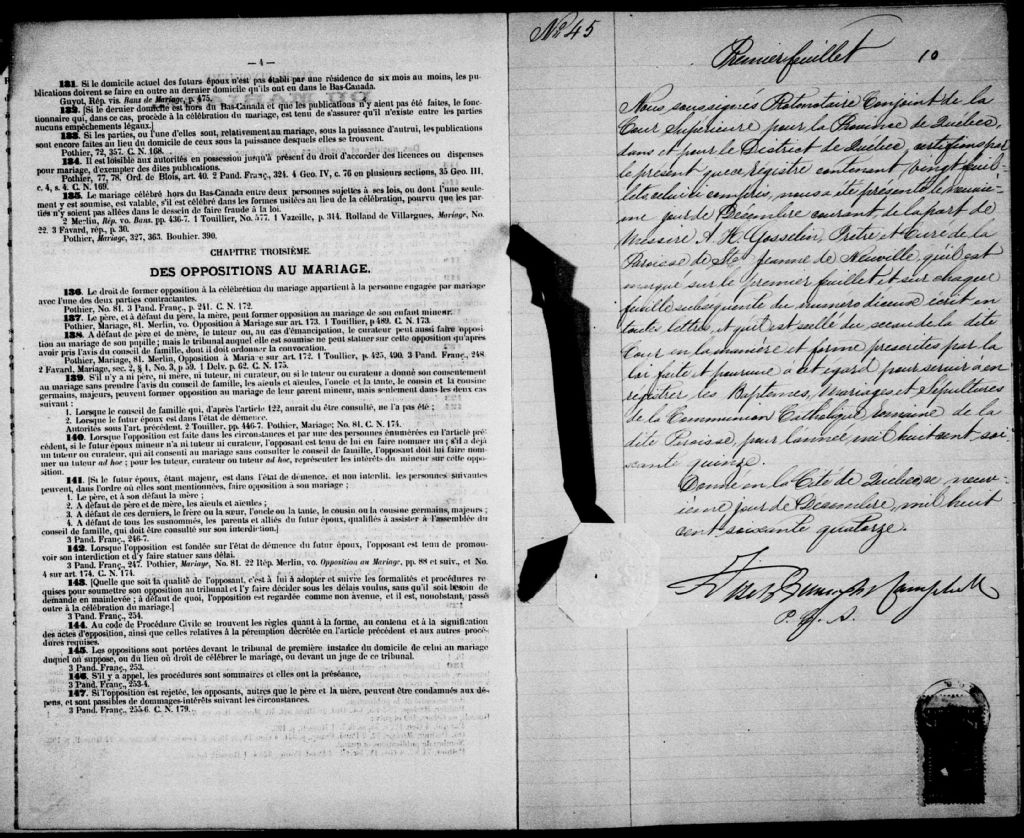 — 4 —
131. Si le domicile actuel des futurs époux n'est pas établi par une résidence de six mois au moins, les pu-
blications doivent se faire en outre au dernier domicile qu'ils ont eu dans le Bas-Canada.
Guyot, Rép. vis. Bans de Mariage, p. 475.
132. [Si le dernier domicile est hors du Bas-Canada et que les publications n'y aient pas été faites, le fonc-
tionnaire qui, dans ce cas, procède à la célébration du mariage, est tenu de s'assurer qu'il n'existe entre les parties
aucuns empêchements légaux.]
133. Si les parties, ou l'une d'elles sont, relativement au mariage, sous la puissance d'autrui, les publications
sont encore faites au lieu du domicile de ceux sous la puissance desquels elles se trouvent.
Pothier, 72, 357. C. N. 168.
134. Il est loisible aux autorités en possession jusqu'à présent du droit d'accorder des licences ou dispenses
pour mariage, d'exempter des dites publications.
Pothier, 77, 78. Ord. de Blois, art. 40. 2 Pand. Franç., 324. 4 Geo. IV, c. 76 en plusieurs sections, 35 Geo. III,
c. 4, s. 4. C. N. 169.
135. Le mariage célébré hors du Bas-Canada entre deux personnes sujettes à ses lois, ou dont l'une seule-
ment y est soumise, est valable, s'il est célébré dans les formes usitées au lieu de la célébration, pourvu que les par-
ties n'y soient pas allées dans le dessein de faire fraude à la loi.
2 Merlin, Rép. vo. Bans. pp. 436-7. 1 Touiller, No. 577. 1 Vazeille, p. 314. Rolland de Villargues, Mariage, No.
22. 3 Favard, rép., p. 30.
Pothier, Mariage, 327, 363. Bouhier. 390.
CHAPITRE TROISIÈME.
DES OPPOSITIONS AU MARIAGE.
136. Le droit de former opposition à la célébration du mariage appartient à la personne engagée par mariage
avec l'une des deux parties contractantes.
Pothier, No. 81. 3 Pand. Franç., p. 241. C. N. 172.
137. Le père, et à défaut du père, la mère, peut former opposition au mariage de son enfant mineur.
Pothier, Mariage, 81. Merlin, vo. Opposition à Mariage sur art. 173. 1 Toullier, p 489. C. N. 173.
138. A défaut de père et de mère, le tuteur ou, au cas d'émancipation, le curateur peut aussi faire opposi-
tion au mariage de son pupille ; mais le tribunal auquel elle est soumise ne peut statuer sur cette opposition qu'après
avoir pris l'avis du conseil de famille, dont il doit ordonner la convocation.
Pothier, Mariage, 81. Merlin, Opposition à Maria e sur art. 172. 1 Toullier, p. 425, 490. 3 Pand. Franç., 248.
2 Favard, Mariage, sec. 2, § 1, No. 3, p 59. 1 Delv. p. 62. C. N. 175.
139. S'il n'y a ni père, ni mère, ni tuteur, ni curateur, ou si le tuteur ou curateur a donné son consentement
au mariage sans prendre l'avis du conseil de famille, les aïeuls et aïeules, l'oncle et la tante, le cousin et la cousine
germains, majeurs, peuvent former opposition au mariage de leur parent mineur, mais seulement dans les deux cas
suivant :
1. Lorsque le conseil de famille qui, d'après l'article 122, aurait du être consulté, ne l'a pas été ;
2. Lorsque le futur époux est dans l'état de démence.
Autorités sous l'art. précédent. 2 Touiller, pp. 446-7. Pothier, Mariage; No. 81. C. N. 174.
140. Lorsque l'opposition est faite dans les circonstances et par une des personnes énumérées en l'article pré-
cédent, si le futur époux mineur n'a ni tuteur ni curateur, l'opposant est tenu de lui en faire nommer un ; s'il a déjà
un tuteur ou curateur, qui ait consenti au mariage sans consulter le conseil de famille, l'opposant doit lui faire nom-
mer un tuteur ad hoc ; pour les tuteur, curateur ou tuteur ad hoc, représenter les intérêts du mineur sur cette oppo-
sition.
141. [Si le futur époux, étant majeur, est dans l'état de démence, et non interdit, les personnes suivantes
peuvent, dans l'ordre où elles sont mentionnées, faire opposition à son mariage ;
1. Le père, et à son défaut la mère ;
2. A défaut de père et de mère, les aïeuls et aïeules ;
3. A défaut de ces derniers, le frère ou la sœur, l'oncle ou la tante, le cousin ou la cousine germains, majeurs ;
4. A défaut de tous les susnommés, les parents et alliés du futur époux, qualifiés à assister à l'assemblée du
conseil de famille, qui doit être consulté sur son interdiction.]
3 Pand. Franç., 246-7.
142. Lorsque l'opposition est fondée sur l'état de démence du futur époux, l'opposant est tenu de promou-
voir son interdiction et d'y faire statuer sans délai.
3 Pand. Franç., 247. Pothier, Mariage, No. 81. 22 Rép. Merlin, vo. Opposition au Mariage, pp. 88 et suiv., et No.
4 sur art. 174. C. N. 174.
143. [Quelle que soit la qualité de l'opposant, c'est à lui à adopter et suivre les formalités et procédures re-
quises pour soumettre son opposition au tribunal et l'y faire décider sous les délais voulus, sans qu'il soit besoin de
demande en mainlevée ; à défaut de quoi, l'opposition est regardée comme non avenue, et il est, nonobstant, passé
outre à la célébration du mariage.]
3 Pand. Franç., 254.
144. Au code de Procédure Civile se trouvent les règles quant à la forme, au contenu et à la signification
des actes d'opposition, ainsi que celles relatives à la péremption décrétée en l'article précédent et aux autres procé-
dures requises.
145. Les oppositions sont portées devant le tribunal de première instance du domicile de celui au mariage
duquel on s'oppose, ou du lieu où droit de célébrer le mariage, ou devant un juge de ce tribunal.
3 Pand. Franç., 253.
146. S'il y a appel, les procédures sont sommaires et elles ont la préséance,
3 Pand. Franç., 253-4.
147. Si l'opposition est rejetée, les opposants, autres que le père et la mère, peuvent être condamnés aux dé-
pens, et sont passibles de dommages-intérêts suivant les circonstances.
3 Pand. Franç., 255-6. C. N. 179.
No 45
Premier feuillet 10
Nous soussignés Protonotaire Conjoint de la
Cour Supérieure pour la Province de Québec,
dans et pour le District de Québec, certifions par
le présent que ce registre contenant vingt feuil
lets celui ci compris, nous a été présenté le neuviè-
me jour de Décembre courant, de la part de
Messire A. H. Gosselin, Prêtre et Curé de la
Paroisse de Ste Jeanne de Neuville, qu'il est
marqué sur le premier feuillet et sur chaque
feuillet subséquente du numero d'iceux écrit en
toutes lettres, et qu'il est scellé du sceau de la dite
Cour en la manière et forme prescrites par la
loi faite et pourvue a cet égard, pour servir a en
régistrer les Baptêmes, Mariages et Sépultures
de la Communion Catholique romaine de la
dite Paroisse, pour l'année mil huit cent, soi
xante quinze.
Donné en la Cité de Québec, ce neuv-
ième jour de Décembre, mil huit
cent soixante quatorze.
Campbell
P. C. S.